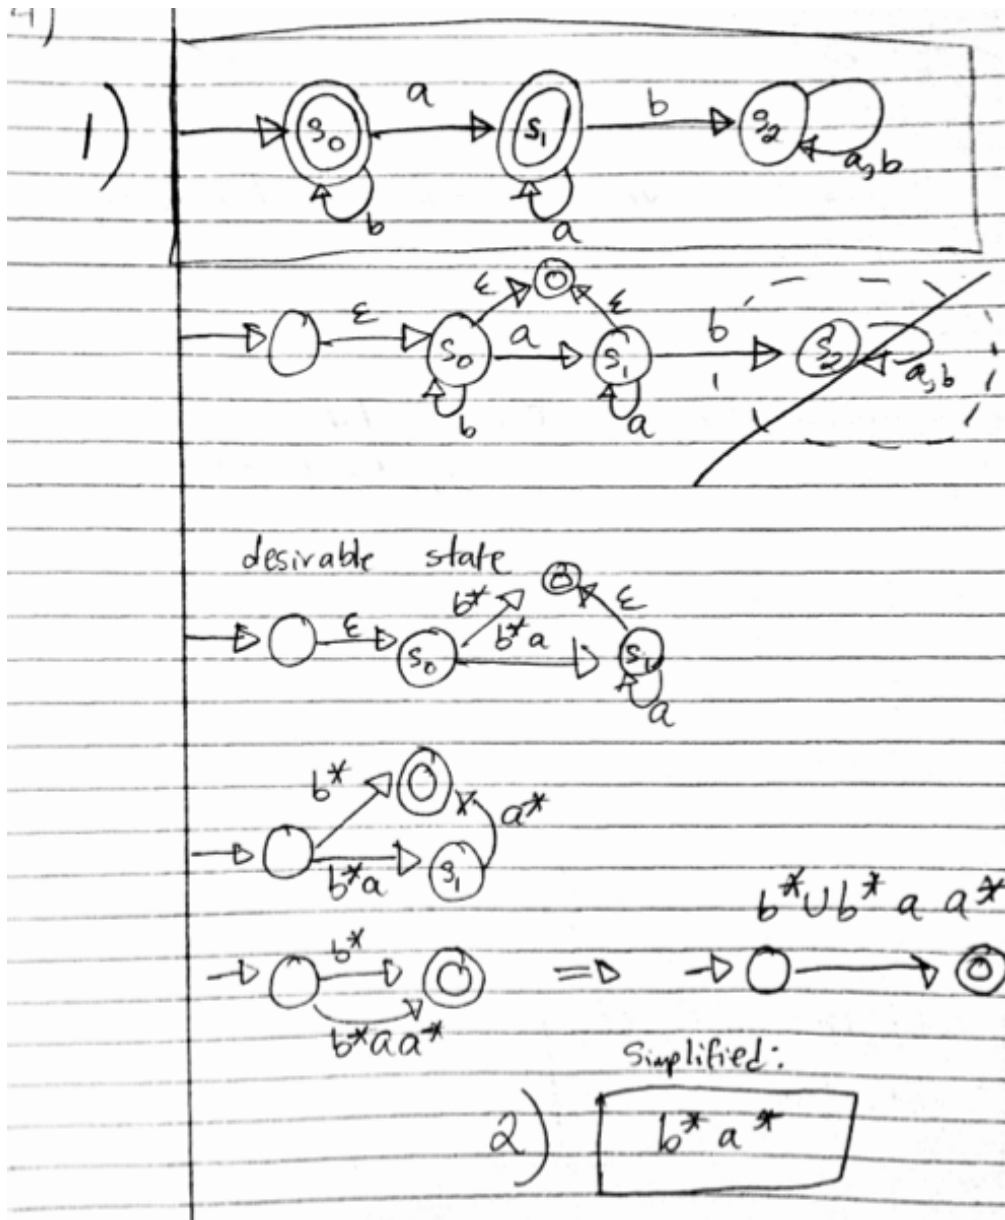 4)
1)
s0 a s1 b s2
b a a,b
ε ε
ε s0 a s1 b s2
b a a,b
desirable state
b* ε
ε s0 b*a s1
a
b* a*
b*a s1
b*∪b* a a*
b*
b*aa*
Simplified:
2) b* a*